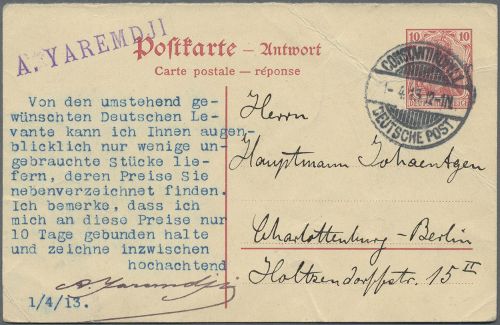 A. YAREMDJI
Postkarte – Antwort
Carte postale – réponse
10 10
DEUTSCHES REICH
CONSTANTINOPEL
1-4.13. 12-1N.
DEUTSCHE POST
Von den umstehend ge-
wünschten Deutschen Le-
vante kann ich Ihnen augen-
blicklich nur wenige un-
gebrauchte Stücke lie-
fern, deren Preise Sie
nebenverzeichnet finden.
Ich bemerke, dass ich
mich an diese Preise nur
10 Tage gebunden halte
und zeichne inzwischen
hochachtend
A. Yaremdji
1/4/13.
Herrn
Hauptmann Johaentgen
Charlottenburg-Berlin
Holtzendorffstr. 15 II